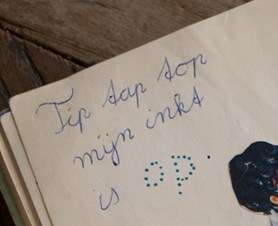 Tip tap top
mijn inkt
is op.